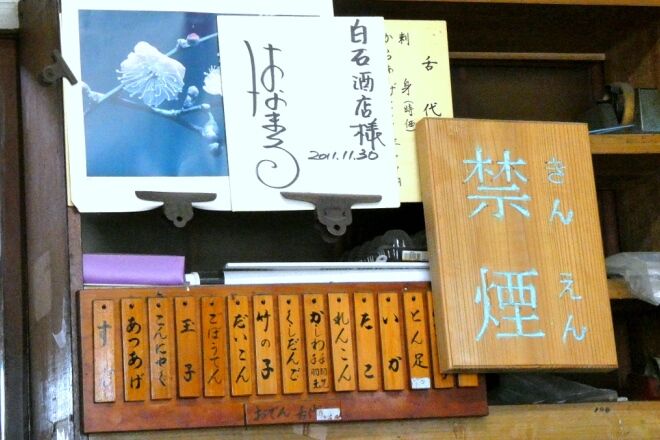 白石酒店様
はなまる
2011.11.30
舌代
刺身(時価)
禁煙
きんえん
とん足
いか
たこ
れんこん
かしわ手羽
くしだんご
竹の子
だいこん
ごぼうてん
玉子
こんにゃく
あつあげ
す
おでん